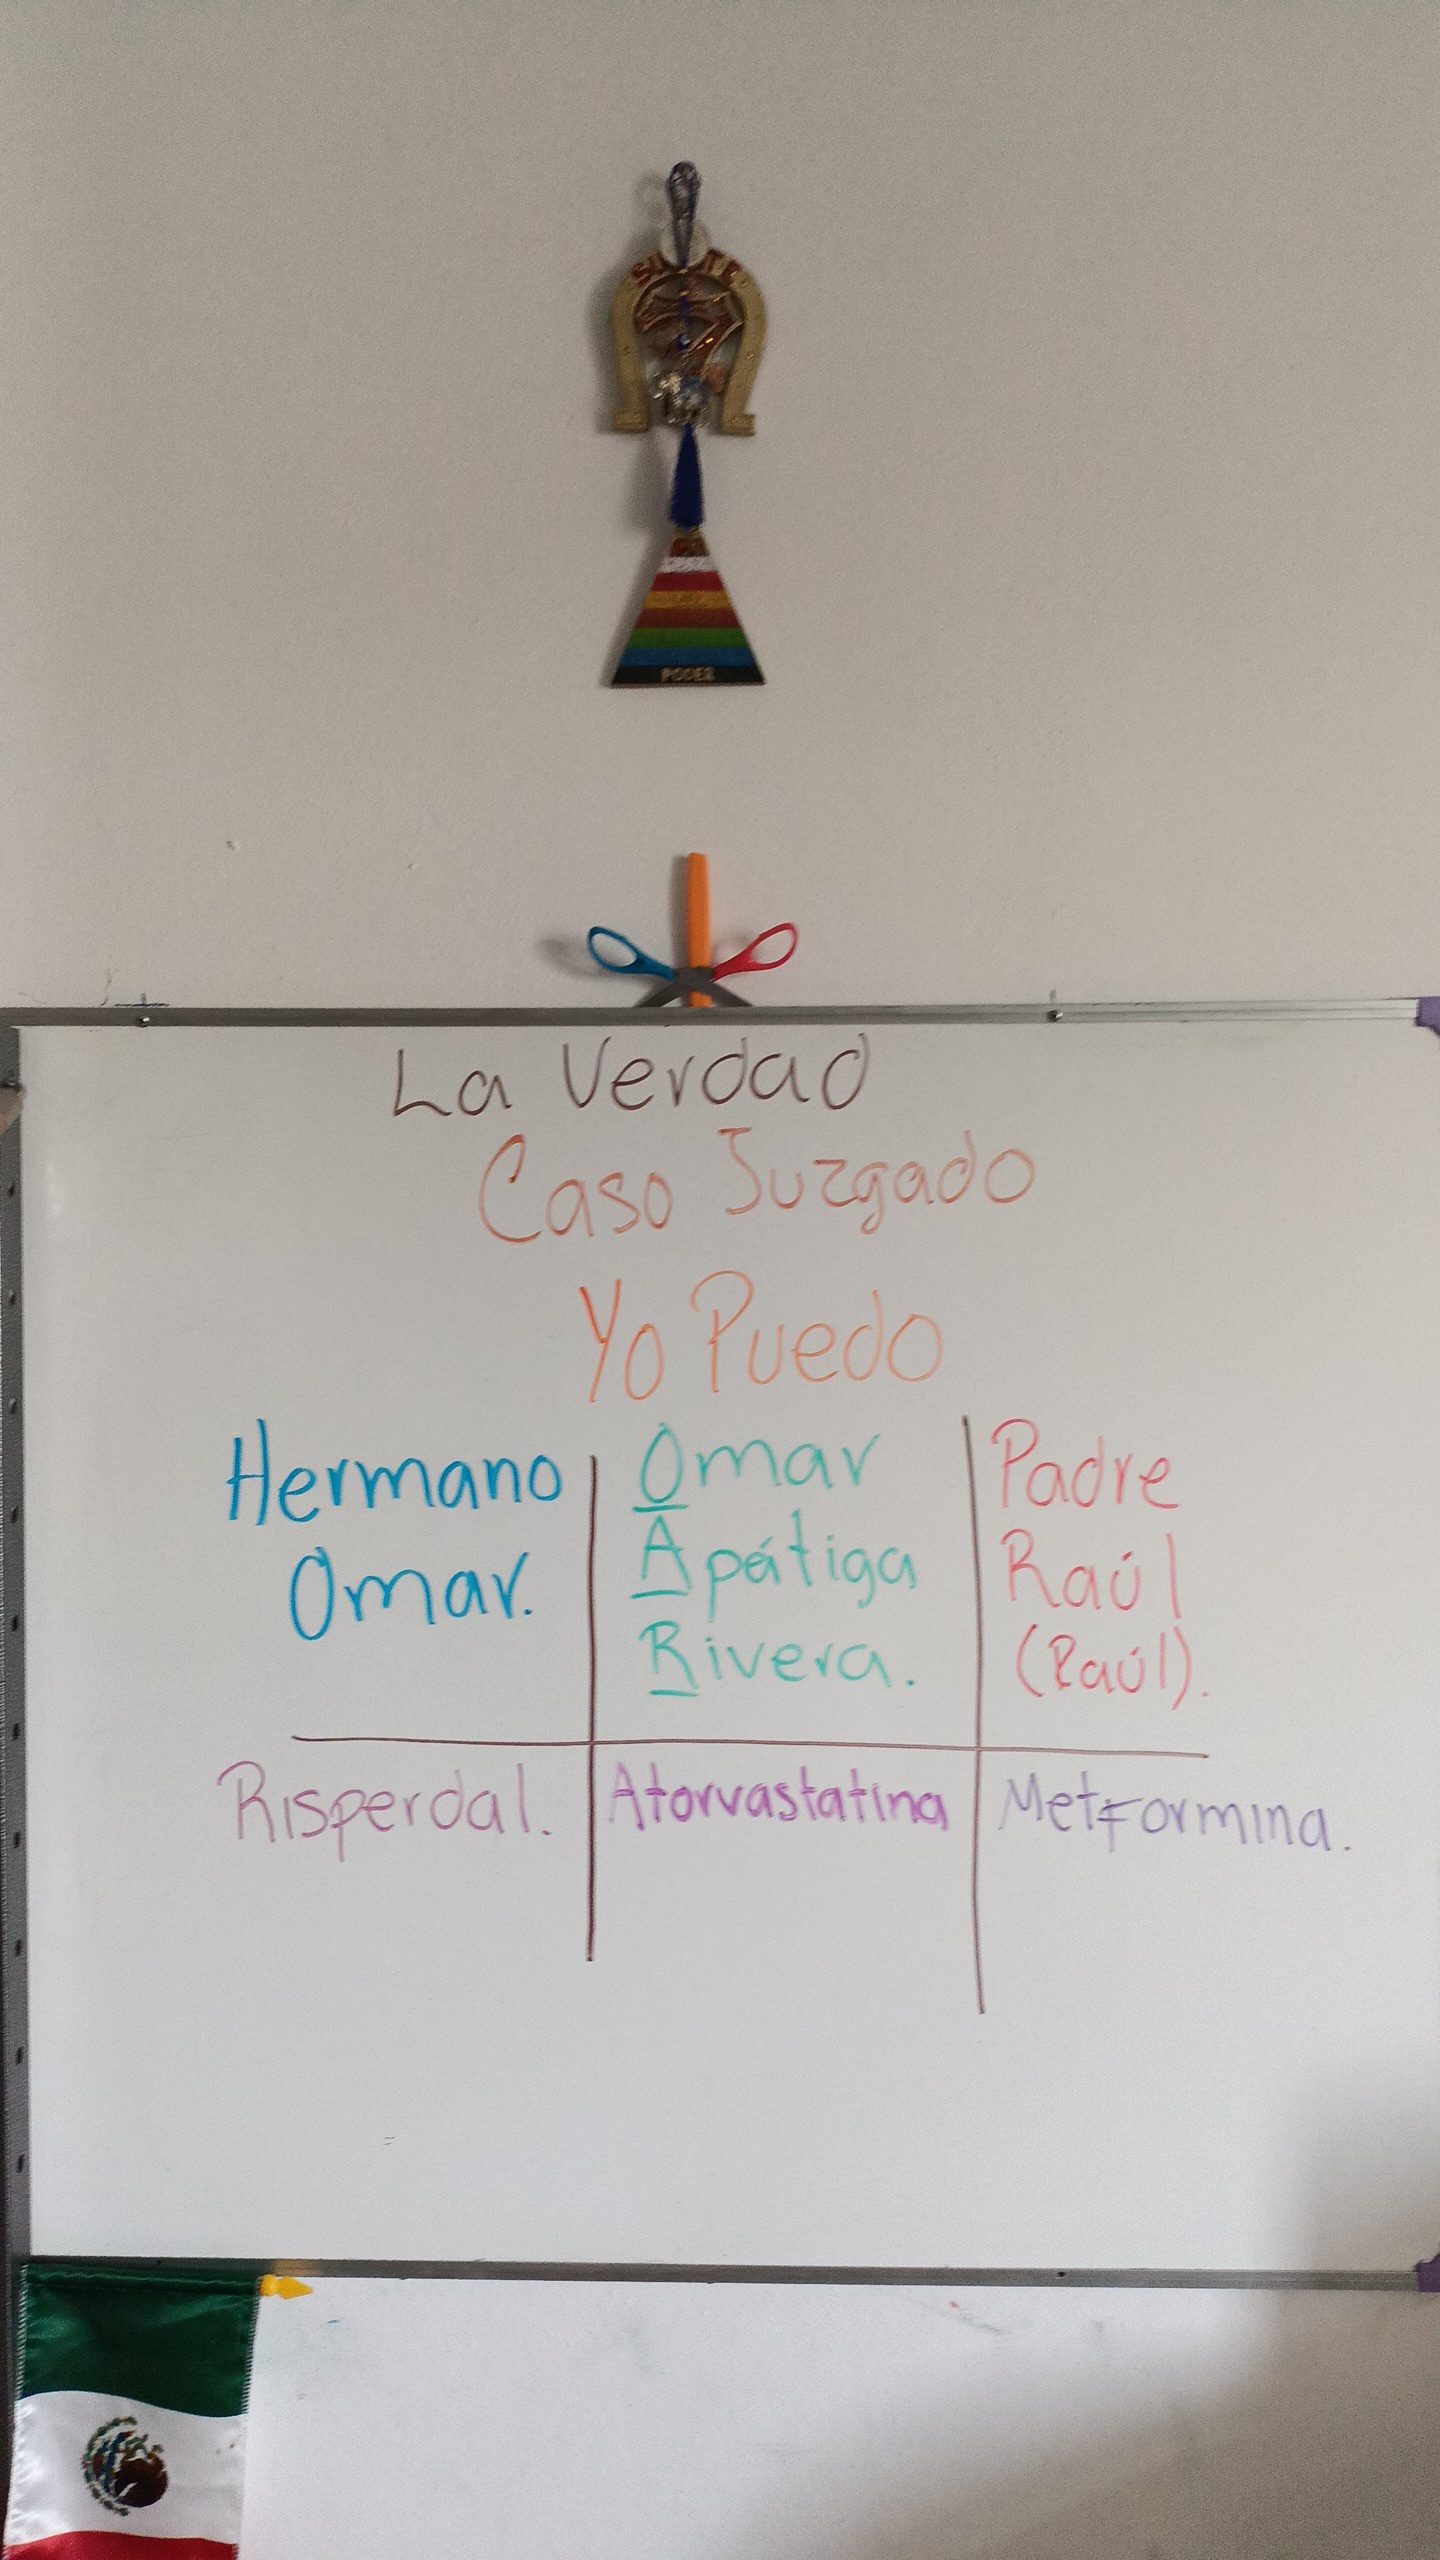 SUERTE
7
PODER
La Verdad
Caso Juzgado
Yo Puedo
Hermano
Omar.
Omar
Apátiga
Rivera.
Padre
Raúl
(Raúl).
Risperdal.
Atorvastatina
Metformina.